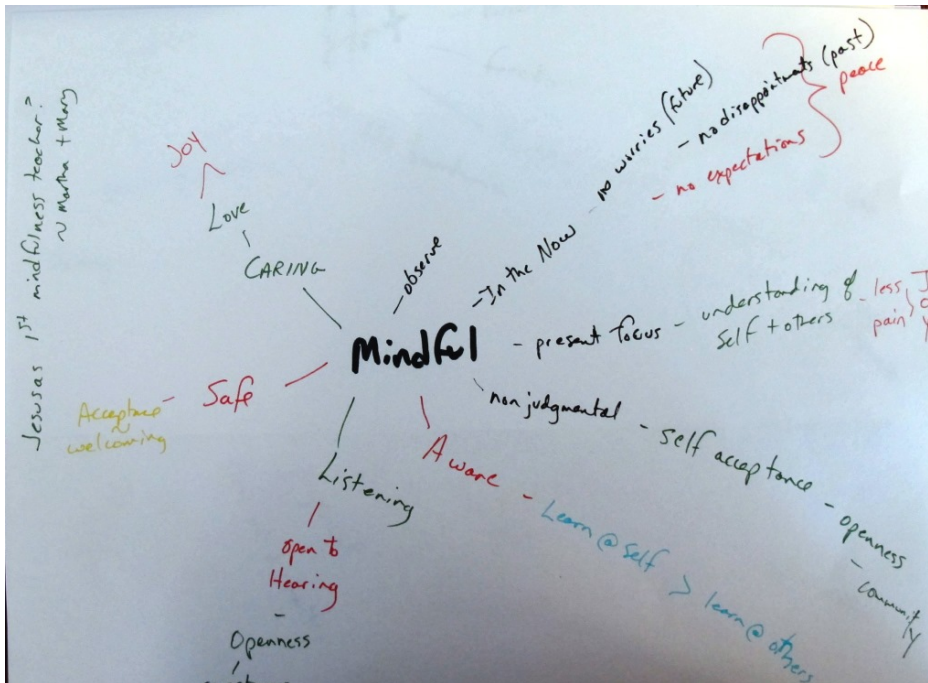 Jesus as 1st mindfulness teacher?
~ Martha + Mary
JOY
Love
CARING
- observe
- In the Now - no worries (future)
- no disappointments (past)
- no expectations
peace
Mindful
- present focus - understanding of
self + others - less
pain
JOY
nonjudgmental - self acceptance - openness
- community
Aware - Learn @ self > learn @ others
Listening
open to
Hearing
-
Openness
Safe -
Acceptance
~
welcoming